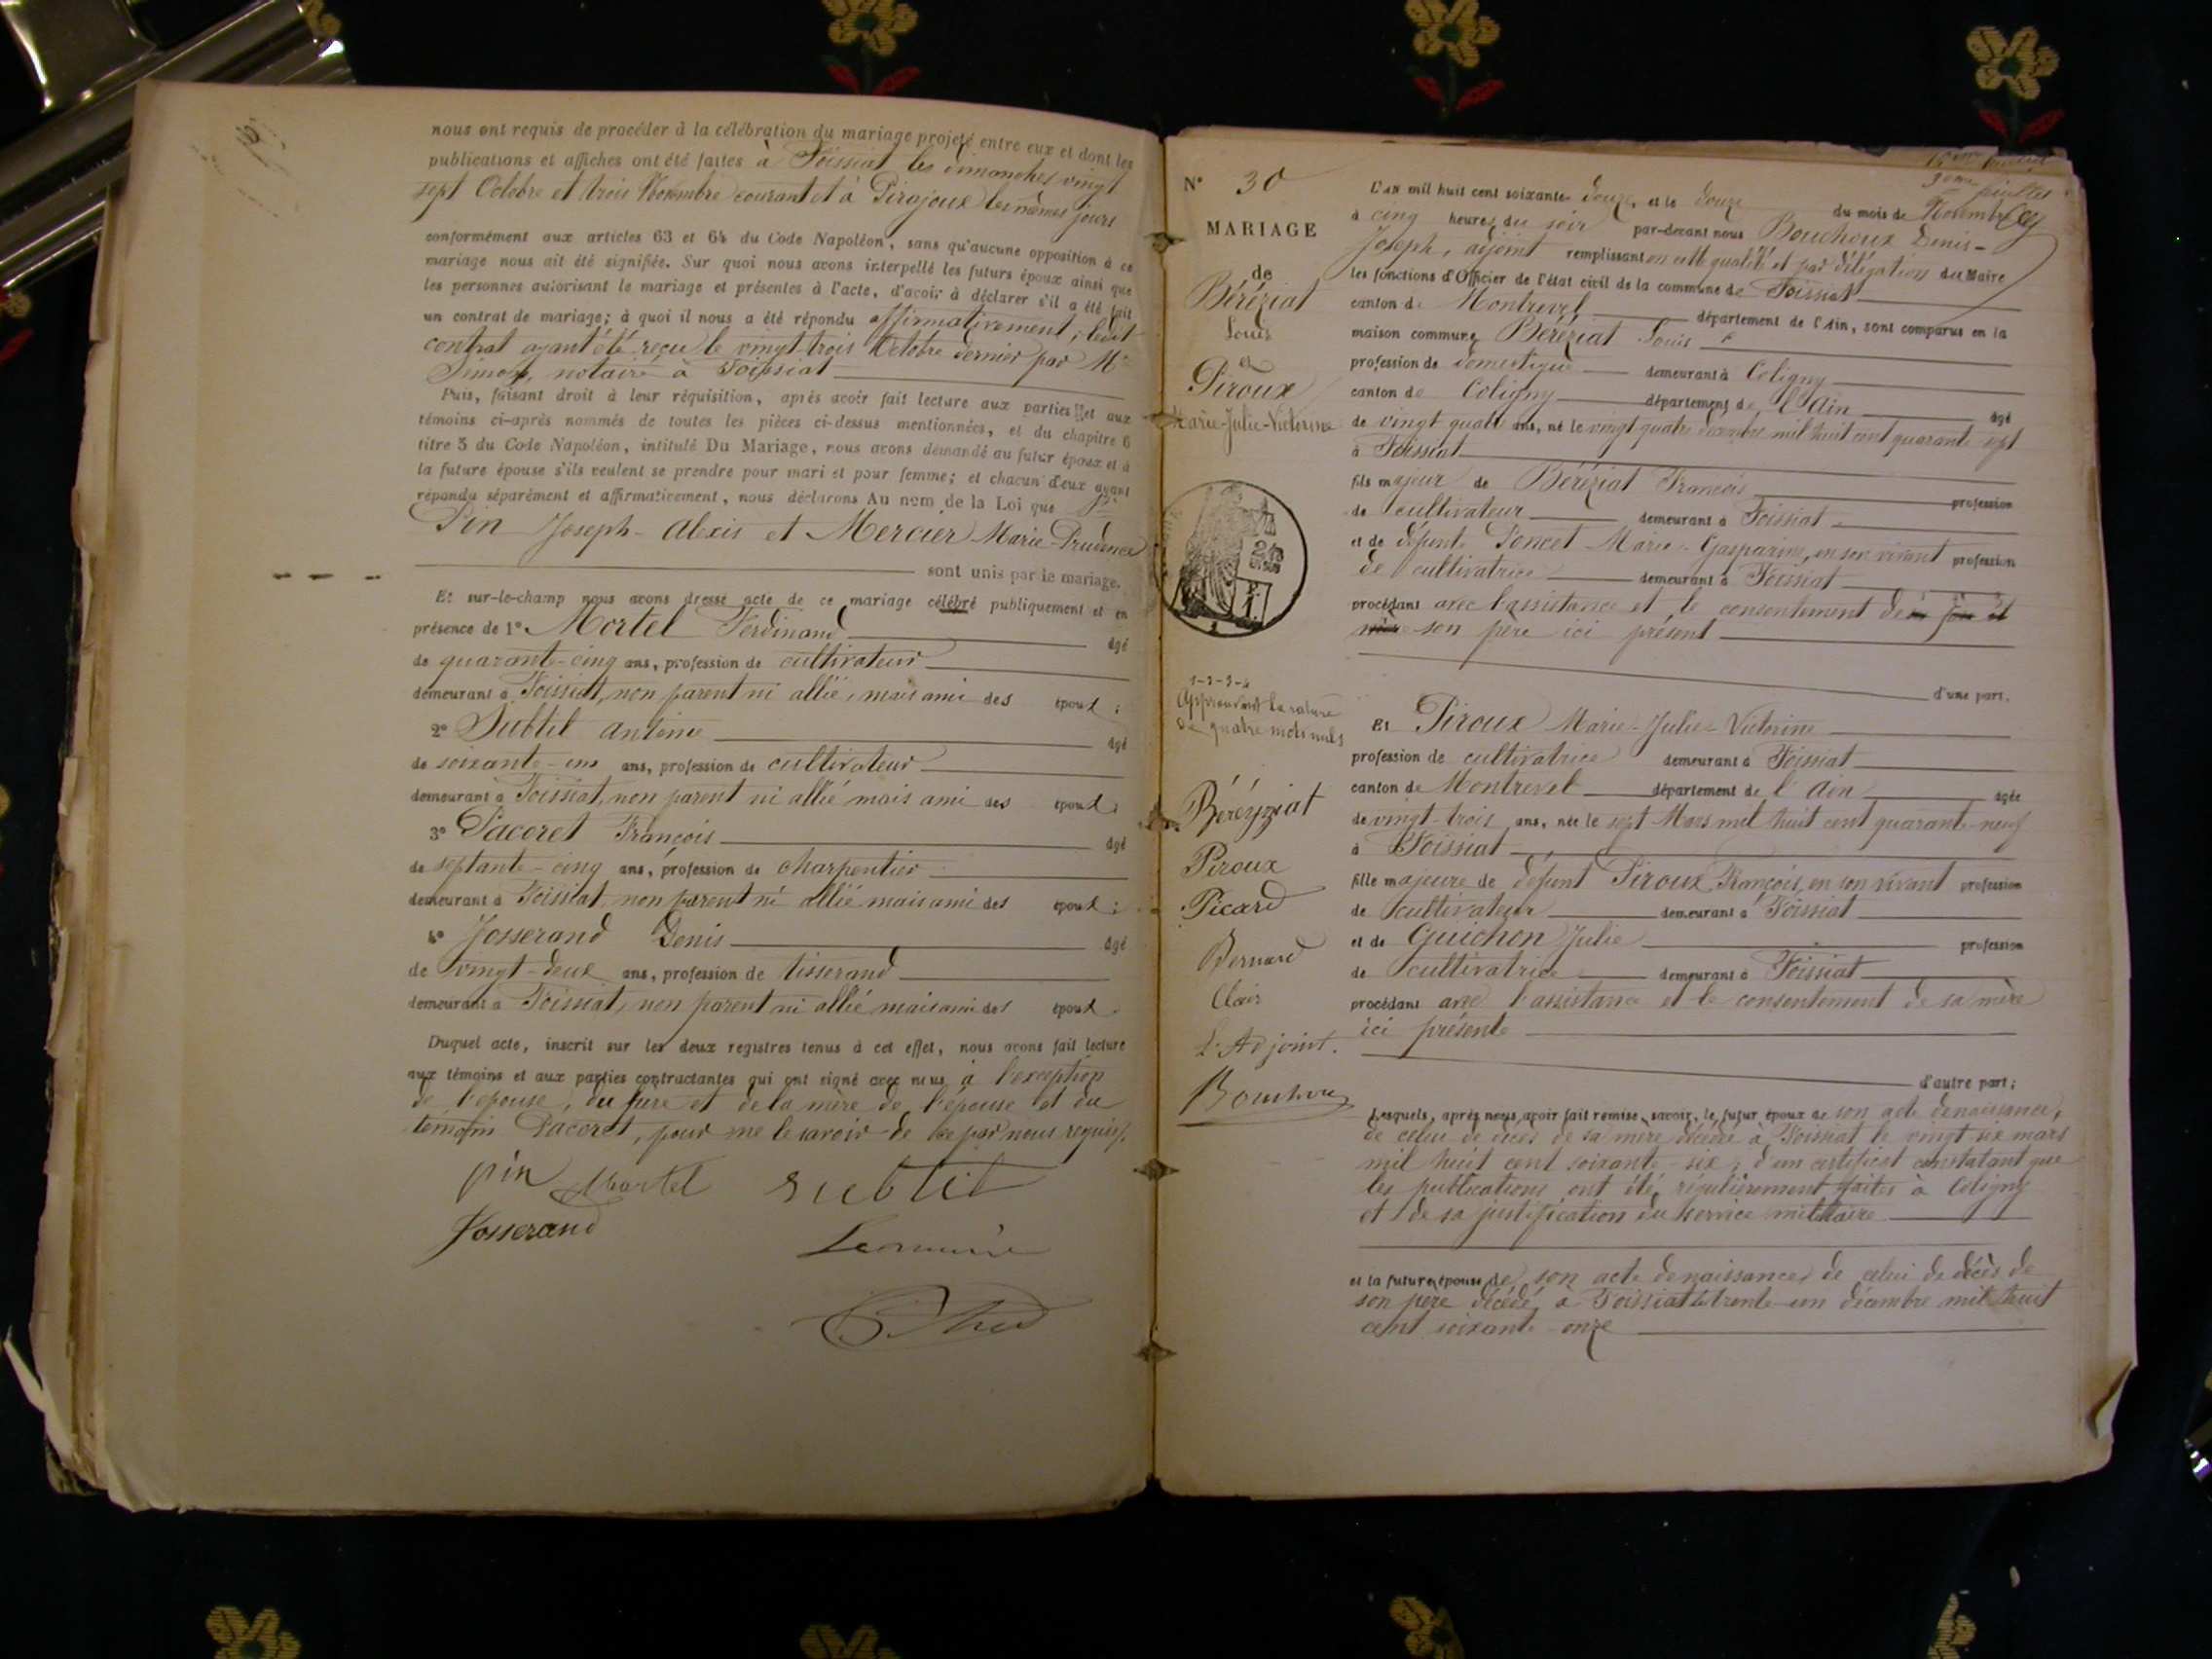 nous ont requis de procéder à la célébration du mariage projeté entre eux et dont les
publications et affiches ont été faites à Foissiat les dimanches vingt
sept Octobre et trois Novembre courant et à Pirajoux les mêmes jours
conformément aux articles 63 et 64 du Code Napoléon, sans qu'aucune opposition à ce
mariage nous ait été signifiée. Sur quoi nous avons interpellé les futurs époux ainsi que
les personnes autorisant le mariage et présentes à l'acte, d'avoir à déclarer s'il a été fait
un contrat de mariage; à quoi il nous a été répondu affirmativement, ledit
contrat ayant été reçu le vingt trois Octobre dernier par Me
notaire à Foissiat
Puis, faisant droit à leur réquisition, après avoir fait lecture aux parties et aux
témoins ci-après nommés de toutes les pièces ci-dessus mentionnées, et du chapitre 6
titre 5 du Code Napoléon, intitulé Du Mariage, nous avons demandé au futur époux et à
la future épouse s'ils veulent se prendre pour mari et pour femme; et chacun d'eux ayant
répondu séparément et affirmativement, nous déclarons Au nom de la Loi que
Pin Joseph-Alexis et Mercier Marie-Prudence
sont unis par le mariage.
Et sur-le-champ nous avons dressé acte de ce mariage célébré publiquement et en
présence de 1° Mortel Ferdinand âgé
de quarante-cinq ans, profession de cultivateur
demeurant à Foissiat, non parent ni allié, mais ami des époux;
2° Subtil Antoine âgé
de soixante-un ans, profession de cultivateur
demeurant à Foissiat, non parent ni allié mais ami des époux;
3° Pacoret François âgé
de septante-cinq ans, profession de charpentier
demeurant à Foissiat, non parent ni allié mais ami des époux;
4° Josserand Denis âgé
de vingt-deux ans, profession de tisserand
demeurant à Foissiat, non parent ni allié mais ami des époux.
Duquel acte, inscrit sur les deux registres tenus à cet effet, nous avons fait lecture
aux témoins et aux parties contractantes qui ont signé avec nous à l'exception
de l'épouse, du père et de la mère de l'épouse et du
témoin Pacoret, pour ne le savoir de ce par nous requis.
pin Mortel subtil
Josserand
N° 30
MARIAGE
de
Béréziat
Louis
et
Piroux
Marie-Julie-Victorine
1-2-3-4
Approuvant la rature
de quatre mots nuls
Béréyziat
Piroux
Picard
Bernard
Clair
L'Adjoint.
Bouchoux
L'an mil huit cent soixante-douze, et le douze du mois de Novembre
à cinq heures du soir par-devant nous Bouchoux Denis-
Joseph, adjoint remplissant en cette qualité et par délégation du Maire
les fonctions d'Officier de l'état civil de la commune de Foissiat
canton de Montrevel département de l'Ain, sont comparus en la
maison commune Béréziat Louis
profession de domestique demeurant à Coligny
canton de Coligny département de l'Ain âgé
de vingt quatre ans, né le vingt quatre décembre mil huit cent quarante sept
à Foissiat
fils majeur de Béréziat François profession
de cultivateur demeurant à Foissiat
et de défunte Poncet Marie-Gasparine, en son vivant profession
de cultivatrice demeurant à Foissiat
procédant avec l'assistance et le consentement de ses père et
mère son père ici présent
d'une part.
Et Piroux Marie-Julie-Victorine
profession de cultivatrice demeurant à Foissiat
canton de Montrevel département de l'Ain âgée
de vingt-trois ans, née le sept Mars mil huit cent quarante-neuf
à Foissiat
fille majeure de défunt Piroux François, en son vivant profession
de cultivateur demeurant à Foissiat
et de Guichon Julie profession
de cultivatrice demeurant à Foissiat
procédant avec l'assistance et le consentement de sa mère
ici présente
d'autre part;
Lesquels, après nous avoir fait remise, savoir, le futur époux de son acte de naissance,
de celui de décès de sa mère décédée à Foissiat le vingt six mars
mil huit cent soixante-six; d'un certificat constatant que
les publications ont été régulièrement faites à Coligny
et de sa justification du service militaire
et la future épouse de son acte de naissance, de celui de décès de
son père décédé à Foissiat le trente-un décembre mil huit
cent soixante-onze